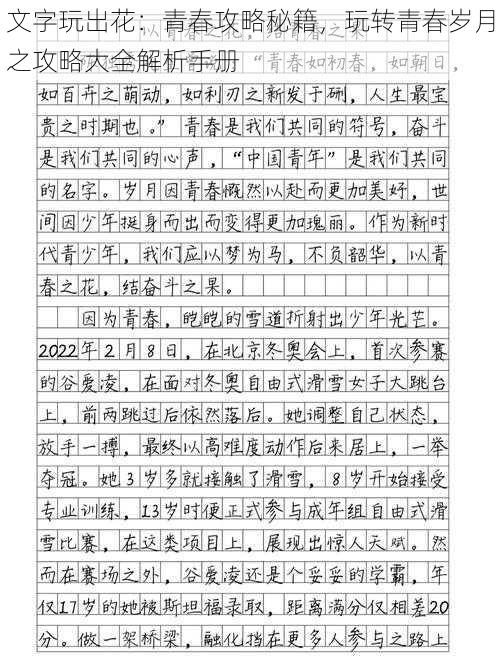 文字玩出花：青春攻略秘籍，玩转青春岁月之攻略大全解析手册
以青春之花
“青春如初春，如朝日，
如百卉之萌动，如利刃之新发于硎，人生最宝
贵之时期也。”青春是我们共同的符号，奋斗
是我们共同的心声，“中国青年”是我们共同
的名字。岁月因青春慨然以赴而更加美好，世
间因少年挺身而出而变得更加瑰丽。作为新时
代青少年，我们应以梦为马，不负韶华，以青
春之花，结奋斗之果。
因为青春，皑皑的雪道折射出少年光芒。
2022年2月8日，在北京冬奥会上，首次参赛
的谷爱凌，在面对冬奥自由式滑雪女子大跳台
上，前两跳过后依然落后。她调整自己状态，
放手一搏，最终以高难度动作后来居上，一举
夺冠。她3岁多就接触了滑雪，8岁开始接受
专业训练，13岁时便正式参与成年组自由式滑
雪比赛，在这类项目上，展现出惊人天赋。然
而在赛场之外，谷爱凌还是个妥妥的学霸，年
仅17岁的她被斯坦福录取，距离满分仅相差20
分。做一架桥梁，融化挡在更多人参与之路上